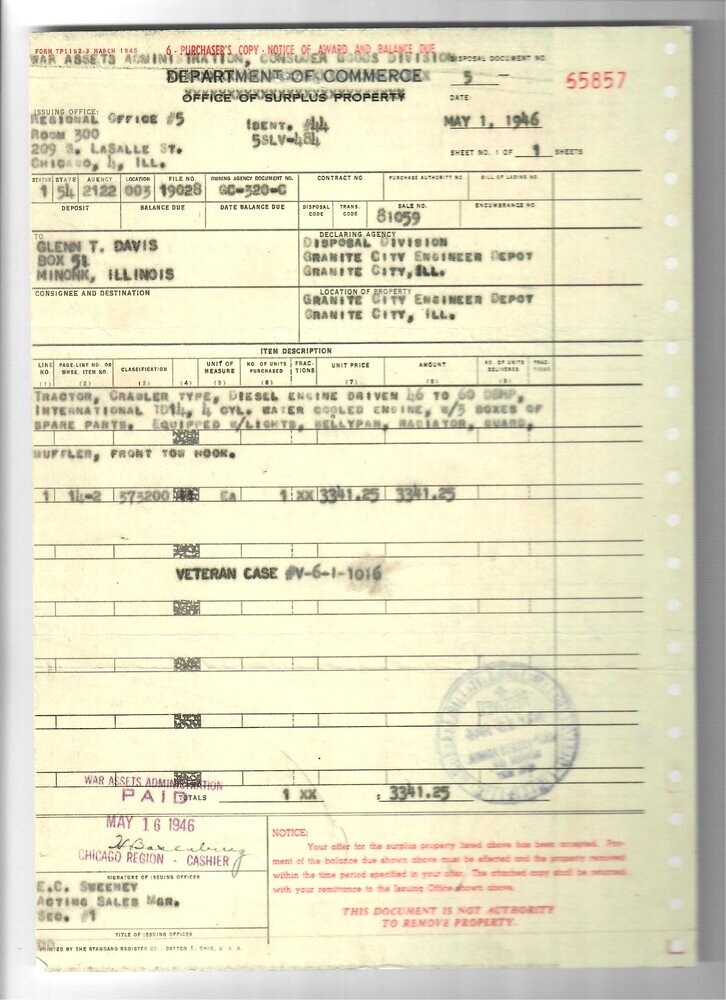 FORM TP1162-3 MARCH 1945
6 - PURCHASER'S COPY - NOTICE OF AWARD AND BALANCE DUE
WAR ASSETS ADMINISTRATION, CONSUMER GOODS DIVISION
DISPOSAL DOCUMENT NO.
DEPARTMENT OF COMMERCE
5 —
65857
OFFICE OF SURPLUS PROPERTY
DATE:
ISSUING OFFICE:
REGIONAL OFFICE #5
IDENT. #44
MAY 1, 1946
ROOM 300
5SLV-484
209 S. LASALLE ST.
SHEET NO. 1 OF 1 SHEETS
CHICAGO, 4, ILL.
STATUS STATE AGENCY LOCATION FILE NO. OWNING AGENCY DOCUMENT NO. CONTRACT NO. PURCHASE AUTHORITY NO. BILL OF LADING NO.
1 54 2122 003 19028 GC-320-C
DEPOSIT BALANCE DUE DATE BALANCE DUE DISPOSAL CODE TRANS. CODE SALE NO. ENCUMBRANCE NO.
81059
TO
GLENN T. DAVIS
BOX 51
MINONK, ILLINOIS
DECLARING AGENCY
DISPOSAL DIVISION
GRANITE CITY ENGINEER DEPOT
GRANITE CITY, ILL.
CONSIGNEE AND DESTINATION
LOCATION OF PROPERTY
GRANITE CITY ENGINEER DEPOT
GRANITE CITY, ILL.
ITEM DESCRIPTION
LINE NO. PAGE-LINE NO. OR WHSE. ITEM NO. CLASSIFICATION UNIT OF MEASURE NO. OF UNITS PURCHASED FRAC-TIONS UNIT PRICE AMOUNT NO. OF UNITS DELIVERED FRAC-TIONS
(1) (2) (3) (4) (5) (6) (7) (8) (9)
TRACTOR, CRAWLER TYPE, DIESEL ENGINE DRIVEN 46 TO 60 DBHP,
INTERNATIONAL TD14, 4 CYL. WATER COOLED ENGINE, W/3 BOXES OF
SPARE PARTS. EQUIPPED W/LIGHTS, BELLYPAN, RADIATOR, GUARD,
MUFFLER, FRONT TOW HOOK.
1 14-2 373200 EA 1 XX 3341.25 3341.25
VETERAN CASE #V-6-1-1016
WAR ASSETS ADMINISTRATION
PAID
TOTALS 1 XX $ 3341.25
MAY 16 1946
CHICAGO REGION - CASHIER
SIGNATURE OF ISSUING OFFICER
E.C. SWEENEY
ACTING SALES MGR.
SEC. #1
TITLE OF ISSUING OFFICER
NOTICE:
Your offer for the surplus property listed above has been accepted. Pay-
ment of the balance due shown above must be effected and the property removed
within the time period specified in your offer. The attached copy shall be returned
with your remittance to the Issuing Office shown above.
THIS DOCUMENT IS NOT AUTHORITY
TO REMOVE PROPERTY.
PRINTED BY THE STANDARD REGISTER CO., DAYTON 1, OHIO, U. S. A.